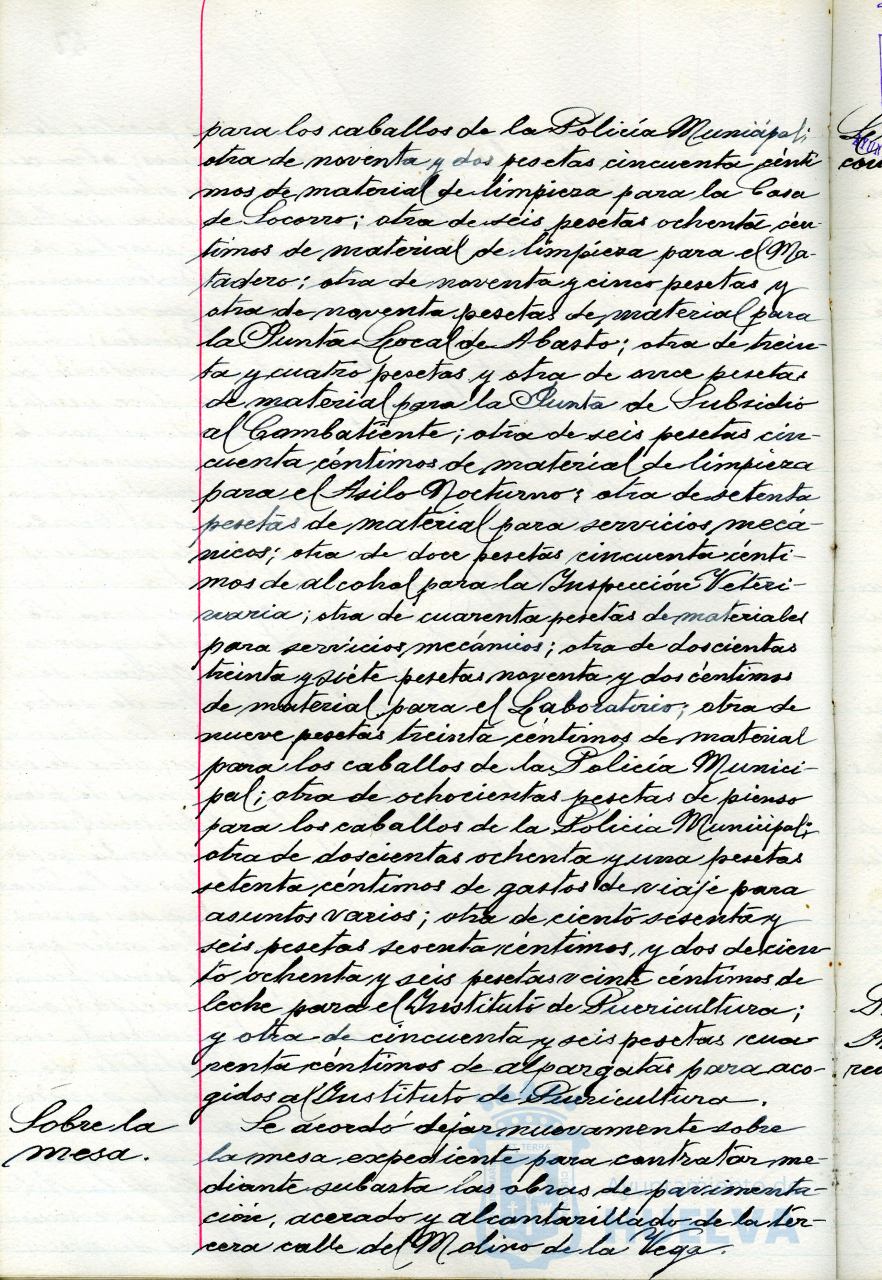 para los caballos de la Policía Municipal;
otra de noventa y dos pesetas cincuenta cénti
mos de material de limpieza para la Casa
de Socorro; otra de seis pesetas ochenta cén-
timos de material de limpieza para el Ma-
tadero; otra de noventa y cinco pesetas y
otra de noventa pesetas de material para
la Junta Local de Abasto; otra de trein-
ta y cuatro pesetas y otra de once pesetas
de material para la Junta de Subsidio
al Combatiente; otra de seis pesetas cin-
cuenta céntimos de material de limpieza
para el Asilo Nocturno; otra de setenta
pesetas de material para servicios mecá-
nicos; otra de doce pesetas cincuenta cénti-
mos de alcohol para la Inspección Veteri-
naria; otra de cuarenta pesetas de materiales
para servicios mecánicos; otra de doscientas
treinta y siete pesetas noventa y dos céntimos
de material para el Laboratorio; otra de
nueve pesetas treinta céntimos de material
para los caballos de la Policía Munici-
pal; otra de ochocientas pesetas de pienso
para los caballos de la Policia Municipal;
otra de doscientas ochenta y una pesetas
setenta céntimos de gastos de viaje para
asuntos varios; otra de ciento sesenta y
seis pesetas sesenta céntimos, y dos de cien-
to ochenta y seis pesetas veinte céntimos de
leche para el Instituto de Puericultura;
y otra de cincuenta y seis pesetas cua-
renta céntimos de alpargatas para aco-
gidos al Instituto de Puericultura.
Sobre la
mesa.
Se acordó dejar nuevamente sobre
la mesa expediente para contratar me-
diante subasta las obras de pavimenta-
ción, acerado y alcantarillado de la ter-
cera calle del Molino de la Vega.
Ayuntamiento de
HUELVA